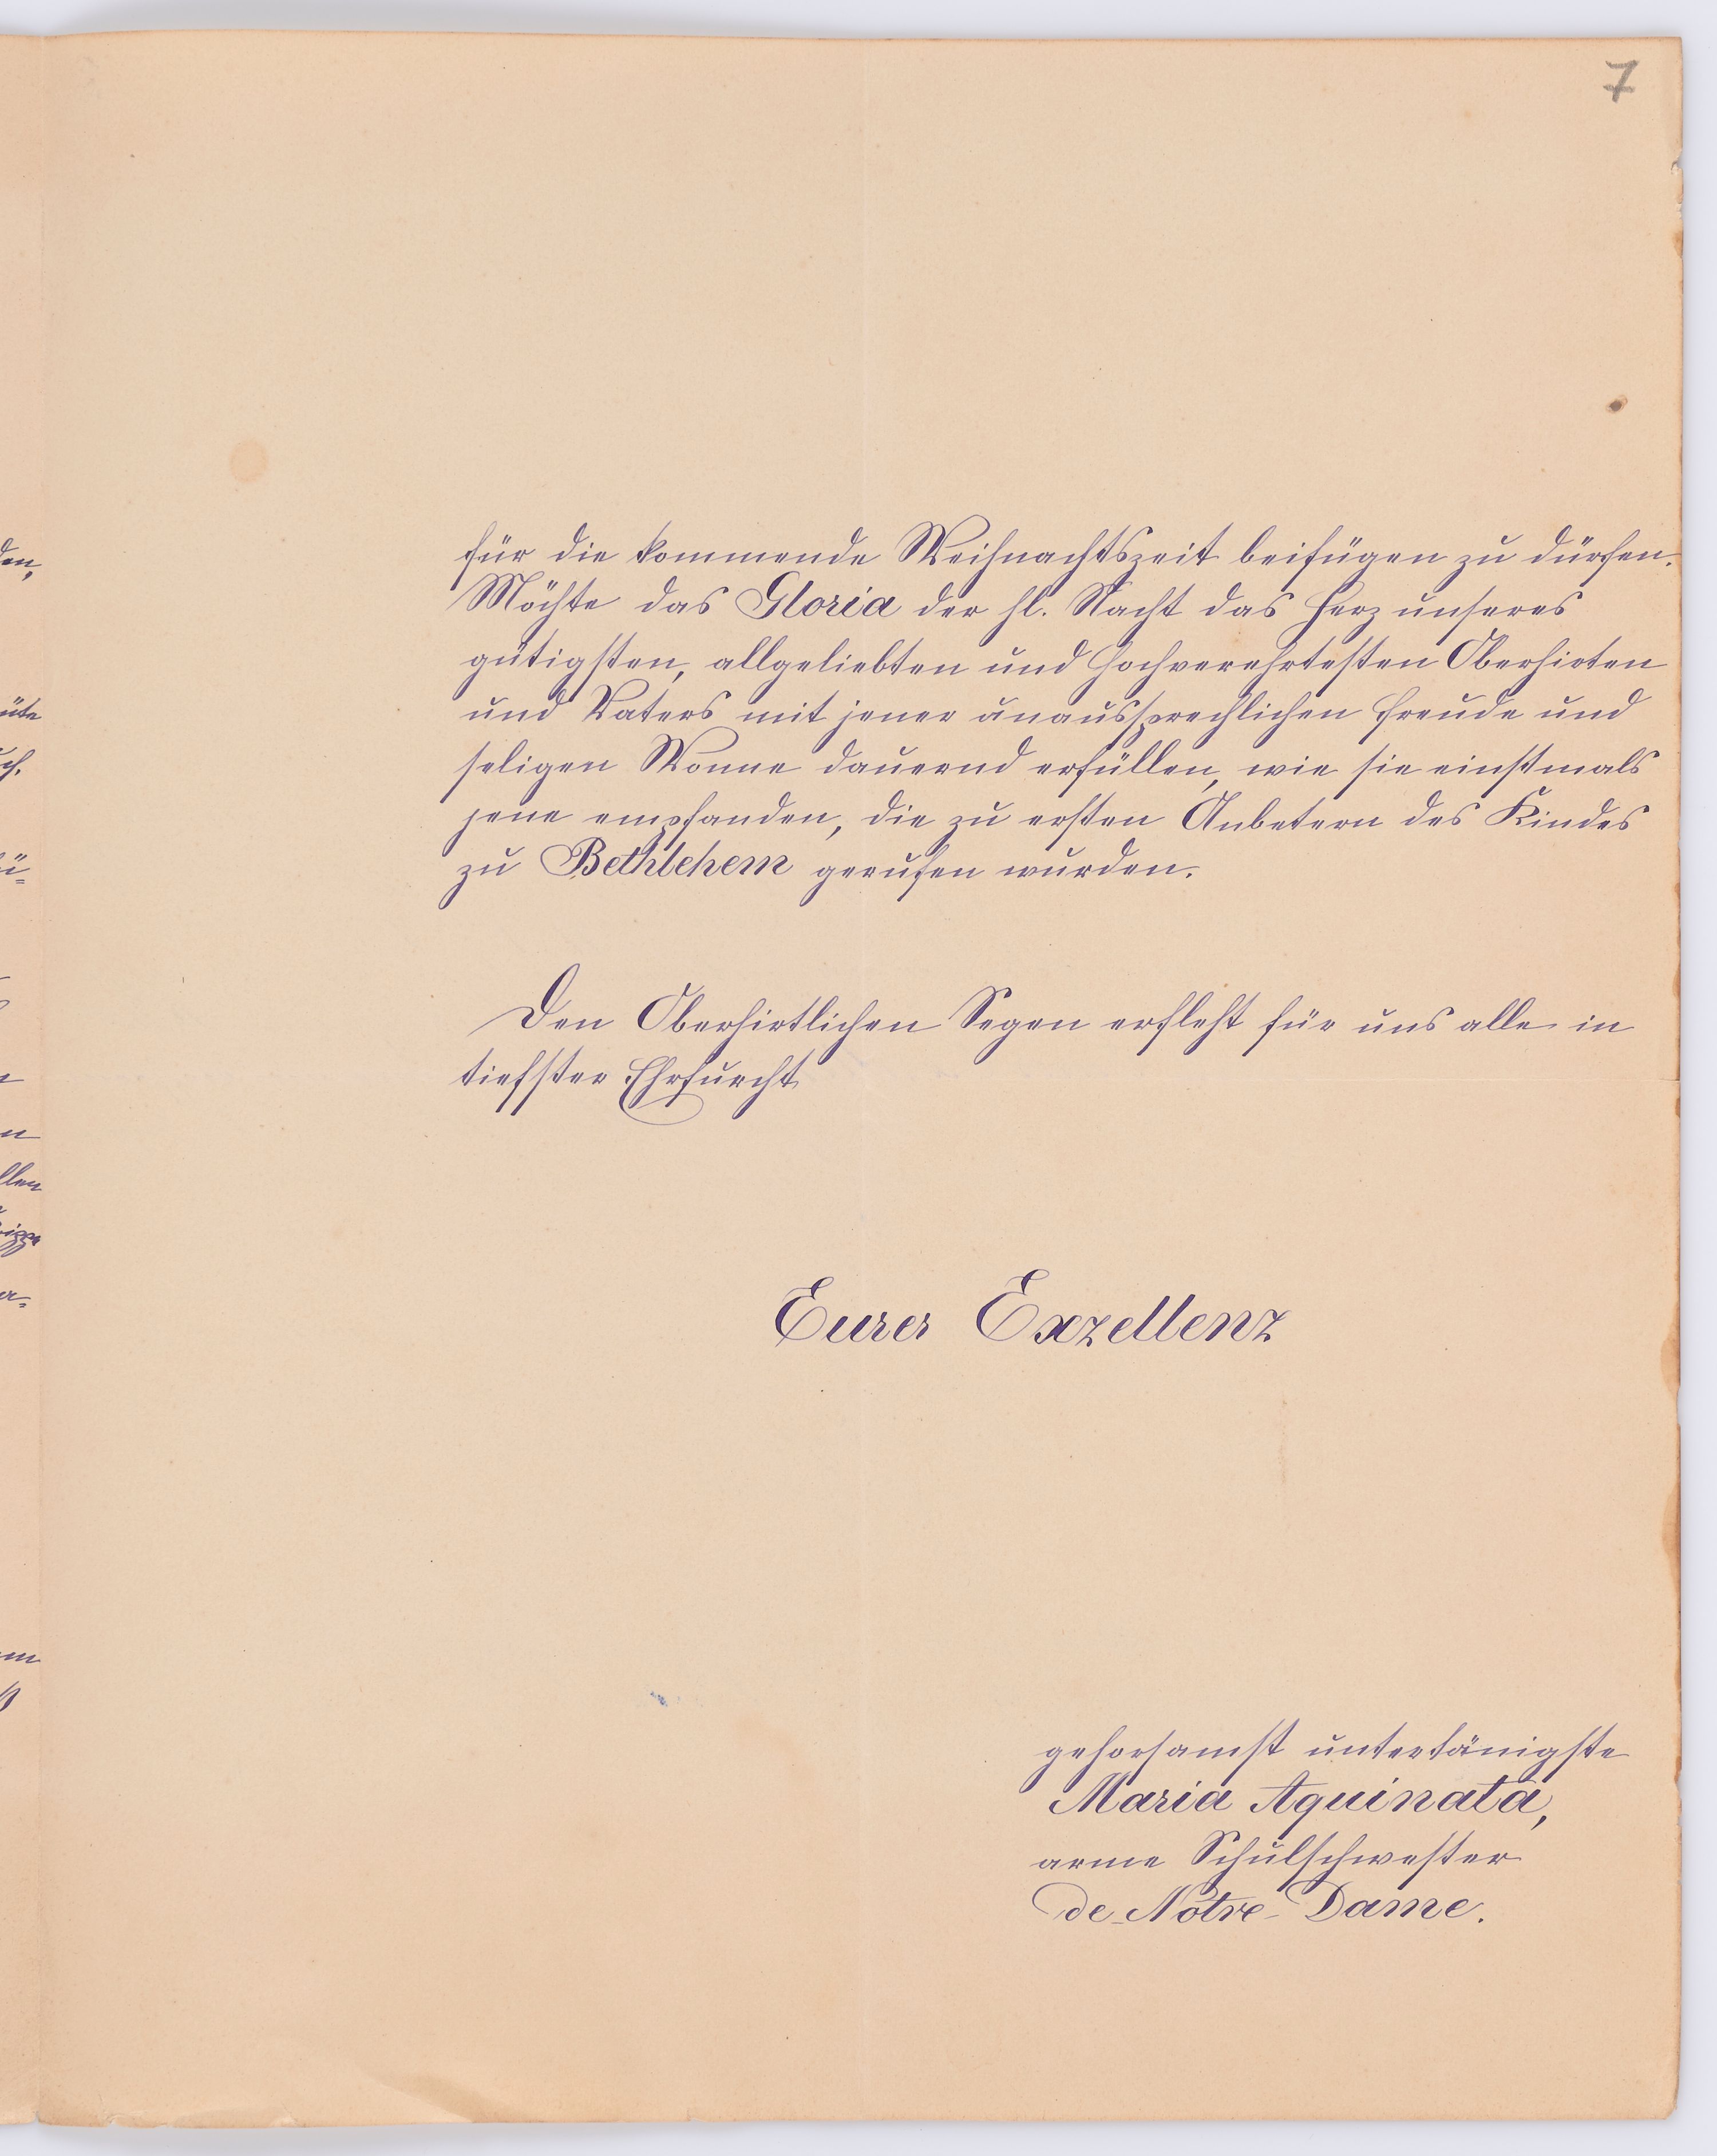 7
für die kommende Weihnachtszeit beifügen zu dürfen.
Möchte das Gloria der hl. Nacht das Herz unseres
gütigsten, allgeliebten und hochverehrtesten Oberhirten
und Vaters mit jener unaussprechlichen Freude und
seligen Wonne dauernd erfüllen, wie sie einstmals
jene empfanden, die zu ersten Anbetern des Kindes
zu Bethlehem gerufen wurden.
Den Oberhirtlichen Segen erfleht für uns alle in
tiefster Ehrfurcht
Eurer Exzellenz
gehorsamst untertänigste
Maria Aquinata,
arme Schulschwester
de Notre Dame.